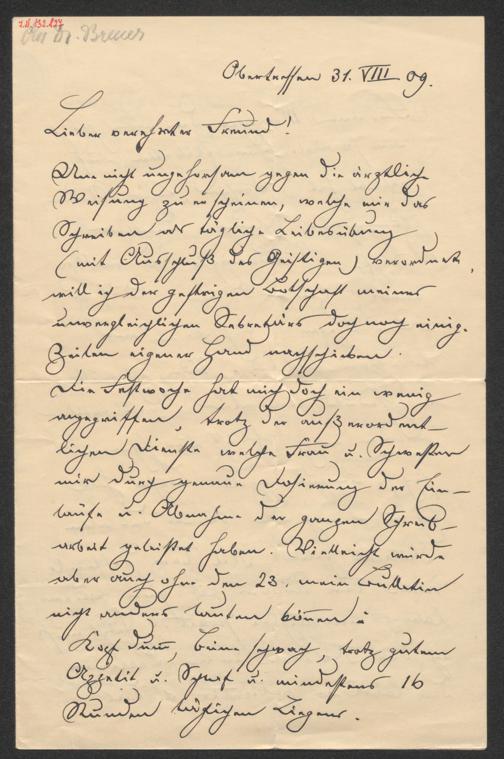 An Dr. Breuer
Obertressen 31. VIII 09.
Lieber verehrter Freund!
Um nicht ungehorsam gegen die ärztliche
Weisung zu erscheinen, welche mir das
Schreiben als tägliche Leibesübung
(mit Ausschluß des Geistigen) verordnet,
will ich der gestrigen Botschaft meines
unvergleichlichen Sekretärs doch noch einig.
Zeilen eigener Hand nachschieben.
Die Festwoche hat mich doch ein wenig
angegriffen, trotz der außerordent-
lichen Dienste welche Frau u. Schwester
mir durch genaue Dosierung der Ein-
läufe u. Abnahme der ganzen Schreib-
arbeit geleistet haben. Vielleicht würde
aber auch ohne den 23. mein Bulletin
nicht anders lauten können:
Kopf dumm, Beine schwach, trotz gutem
Appetit u. Schlaf u. mindestens 16
Stunden täglichen Liegens.